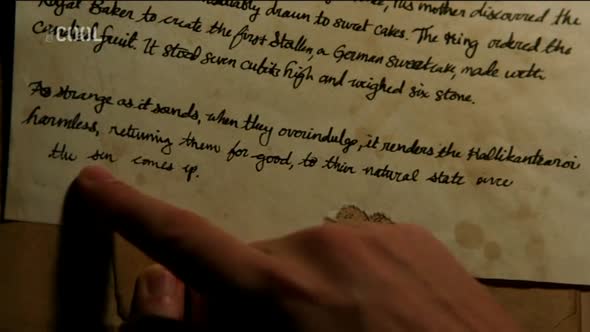 COOL
his mother discovered the
Royal Baker to create the first Stollen, a German sweetcake, made with
drawn to sweet cakes. The King ordered the
candied fruit. It stood seven cubits high and weighed six stone.
As strange as it sounds, when they overindulge, it renders the Hallikantzaroi
harmless, returning them for good, to their natural state once
the sun comes up.